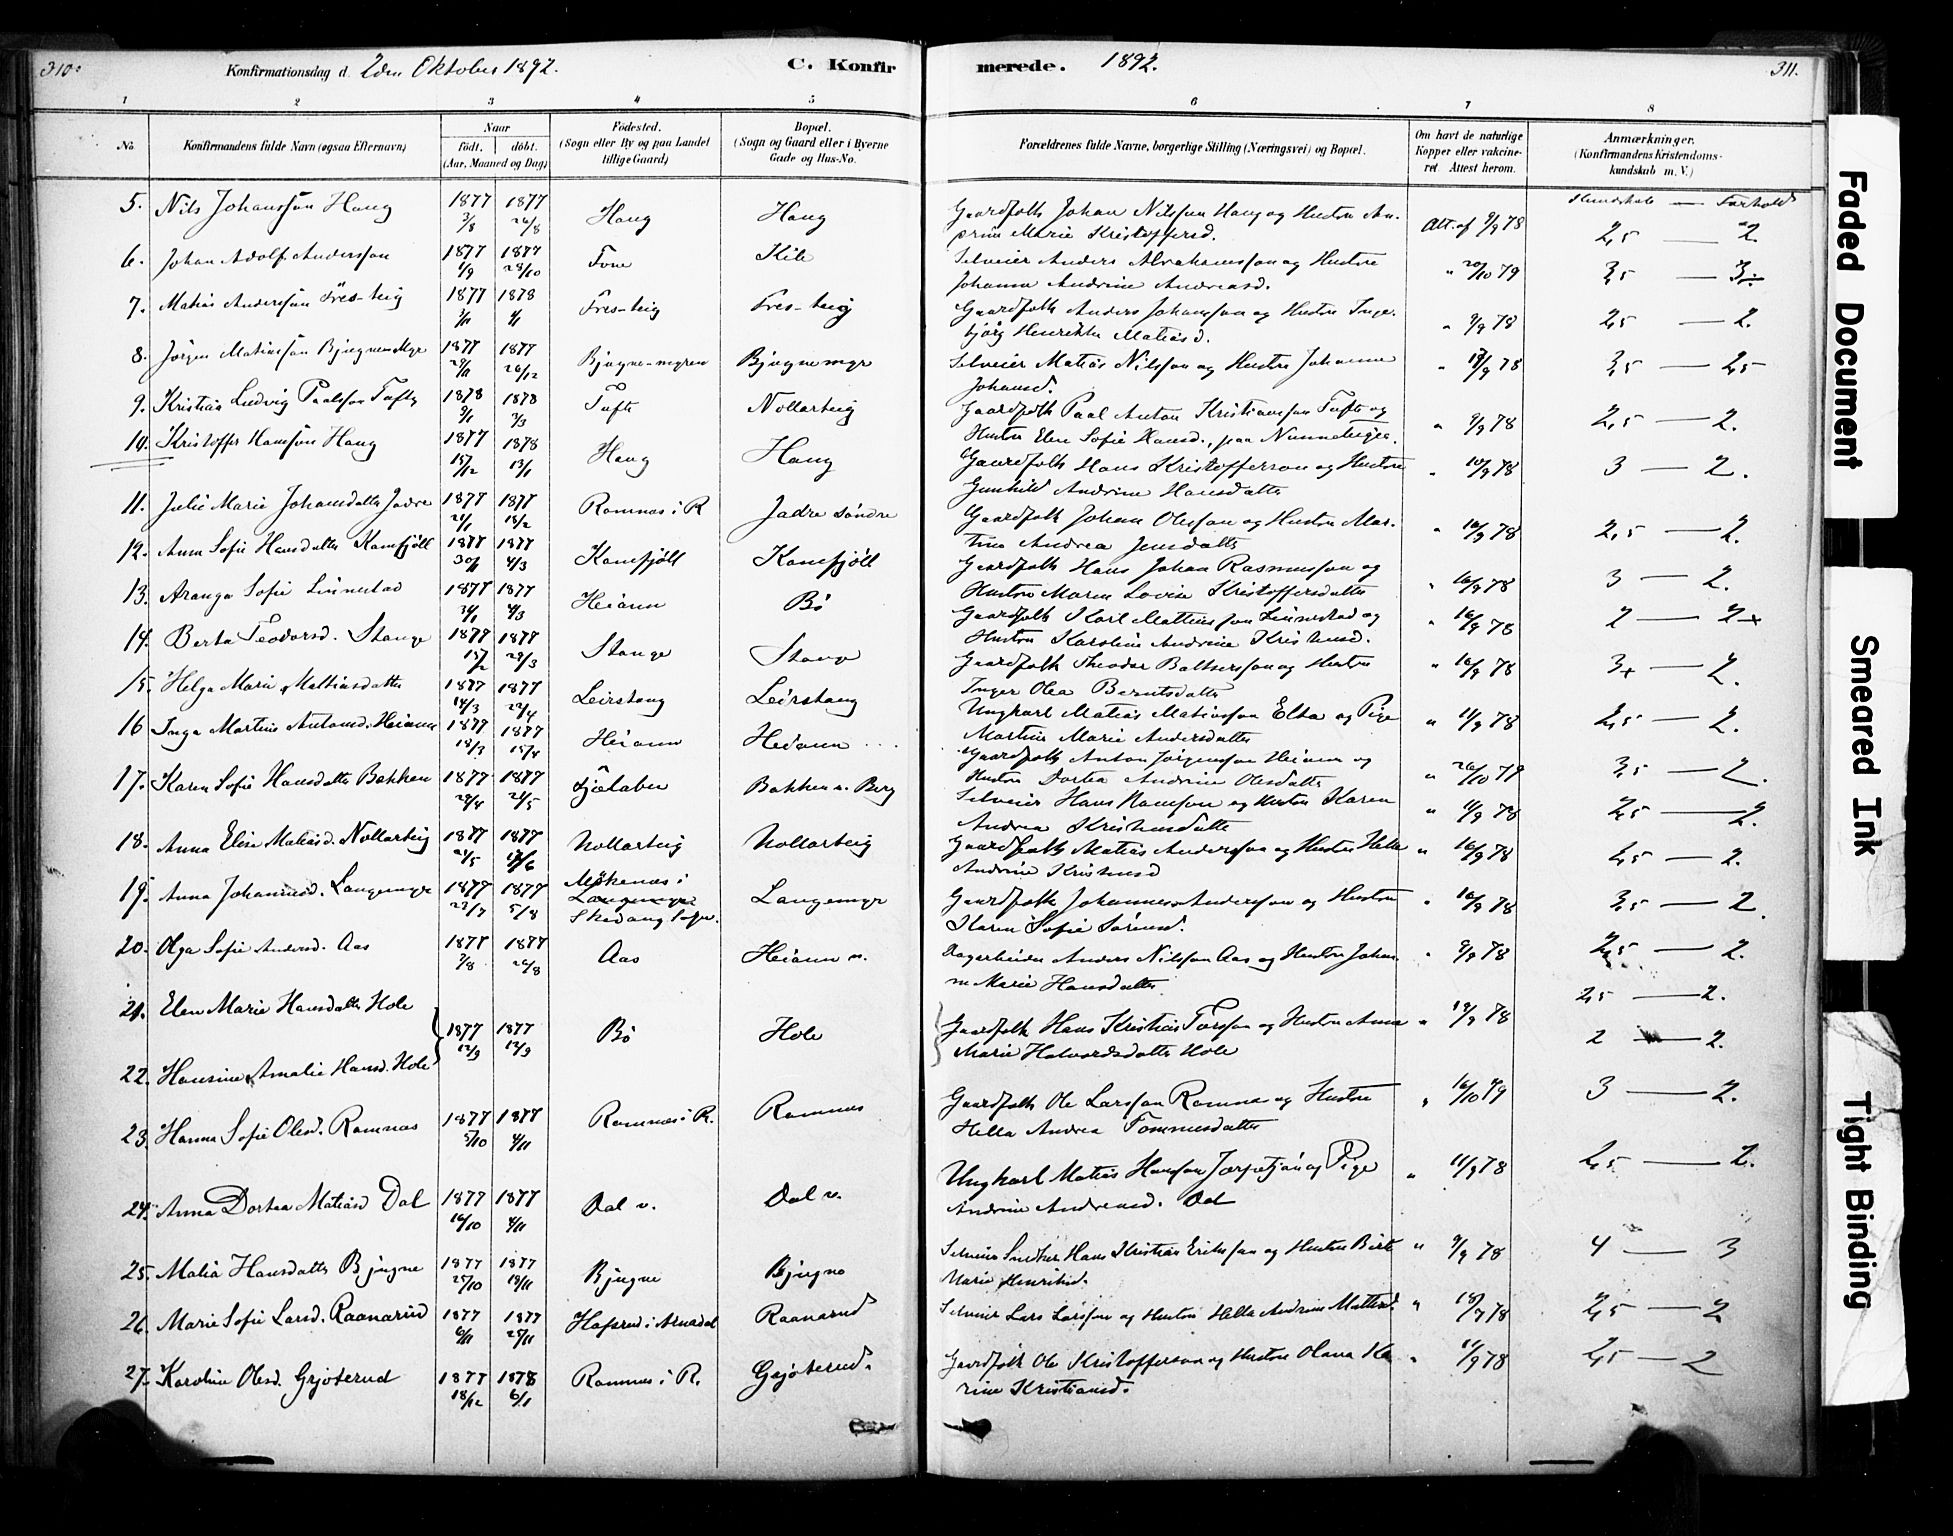 310.
Konfirmationsdag d. 2den Oktober 1892.
C. Konfirmerede. 1892.
311.
1 2 3 4 5 6 7 8
No
Konfirmandens fulde Navn (ogsaa Efternavn)
Naar
födt. döbt.
(Aar, Maaned og Dag)
Födested.
(Sogn eller By og paa Landet
tillige Gaard)
Bopæl.
(Sogn og Gaard eller i Byerne
Gade og Hus-No.
Forældrenes fulde Navne, borgerlige Stilling (Næringsvei) og Bopæl.
Om havt de naturlige
Kopper eller vakcine-
ret. Attest herom.
Anmærkninger.
(Konfirmandens Kristendoms-
kundskab m. V.)
Kundskab — Forhold
5. Nils Johanssøn Haug 1877 3/8 1877 26/8 Haug Haug Gaardfolk Johan Nilssøn Haug og Hustru An-
drine Marie Kristoffersd. Att. af 9/9 78 2,5 — 2.
6. Johan Adolf Anderssøn 1877 1/9 1877 28/10 Kile Selveier Anders Abrahamssøn og Hustru
Johanne Andrine Andreasd. " 20/10 79 3,5 — 3÷
7. Matias Anderssøn Fres-teig 1877 1878 Fres-teig Fres-teig Gaardfolk Anders Johanssøn og Hustru Inge-
bjørg Henrikke Matiasd. " 9/9 78 2,5 — 2.
8. Jørgen Matiassøn Bjugnemyr 1877 1877 26/12 Bjugne-myren Bjugnemyr Selveier Matias Nilssøn og Hustru Johanne
Johansd. 78 3,5 — 2,5
9. Kristian Ludvig Paalssøn Tufte 1878 1878 3/3 Tufte Nollarteig Gaardfolk Paal Anton Kristianssøn Tufte og
Hustru Elen Sofie Hansd., paa " 9/9 78 2,5 — 2.
10. Kristoffer Hanssøn Haug 1877 15/12 1878 13/1 Haug Haug Gaardfolk Hans Kristofferson og Hustru
Gunhild Andrine Hansdatter " 10/9 78 3 — 2.
11. Julie Marie Johansdatter Jadre 1877 1877 18/2 Ramnæs i R Jadre søndre Gaardfolk Johan Olessøn og Hustru Mar-
tine Andrea Jensdatter " 16/9 78 2,5 — 2.
12. Anna Sofie Hansdatter Kamfjöll 1877 1877 4/3 Kamfjöll Kamfjöll Gaardfolk Hans Johan Rasmussøn og
Hustru Maren Lovise Kristoffersdatter " 16/9 78 3 — 2.
13. Aranga Sofie Linnestad 1877 1877 4/3 Heiann Bö Gaardfolk Karl Mattiassøn Linnestad og
Hustru Karoline Andrine " 16/9 78 2 — 2+
14. Berta Teodorsd. Stange 1877 15/2 1877 28/3 Stange Stange Gaardfolk Theodor Baltserssøn og Hustru
Inger Olea Berntsdatter " 16/9 78 3+ — 2.
15. Helga Marie Mathiasdatter 1877 14/3 1877 22/4 Leirstang Leirstang Ungkarl Matias Matiassøn Elta og Pige
Martine Marie Andersdatter " 11/9 78 2,5 — 2.
16 Inga Martine Antonsd. Heiann 1877 1877 Heiann Heiann Gaardfolk Anton Jörgenssøn Heiann og
Hustru Dortea Andrine Olesdatter " 26/10 79 3,5 — 2.
17. Karen Sofie Hansdatter Bakken 1877 29/4 1877 21/5 Bakken u. Berg Selveier Hans Hanssøn og Hustru Karen
Andrea " 11/9 78 2,5 — 2.
18. Anna Elise Matiasd. Nollarteig 1877 21/5 1877 Nollarteig Nollarteig Gaardfolk Matias Anderssøn og Hustru Helle
Andrine " 16/9 78 2,5 — 2.
19. Anna Johannesd. Langemyr 1877 23/7 1877 5/8 i
Langemyr
Langemyr Gaardfolk Johannes Anderssøn og Hustru
Karen Sofie Sörensd. " 16/9 78 3,5 — 2.
20. Olga Sofie Andersd. Aas 1877 7/8 1877 26/8 Aas Heiann u. Dagarbeider Anders Nilssøn Aas og Hustru Johan-
ne Marie Hansdatter. " 9/9 78 2,5 — 2.
21. Elen Marie Hansdatter Hole 2,5 — 2.
1877 12/9 1877 12/9 Bö Hole Gaardfolk Hans Kristian Torssøn og Hustru Anne
Marie Halvordsdatter Hole " 78
22. Hansine Amalie Hansd. Hole 2 — 2.
23. Hanna Sofie Olesd. Ramnæs 1877 5/10 1877 4/11 Ramnæs i R. Ramnæs Gaardfolk Ole Larssøn Ramnæs og Hustru
Helle Andrea Tommesdatter " 16/10 79 3 — 2.
24. Anna Dortea Matiasd Dal 1877 16/10 1877 4/11 Dal v. Dal v. Ungkarl Matias Hanssøn og Pige
Andrine Andreasd. Dal " 11/9 78 2,5 — 2.
25. Malia Hansdatter Bjugne 1877 25/10 1877 18/11 Bjugne Bjugne Selveier Snedker Hans Kristian Erikssøn og Hustru Berte
Marie Henriksd. " 9/9 78 4 — 3
26. Marie Sofie Larsd. Raanarud 1877 6/11 1877 25/11 Hafsrud i Arnadal Raanarud Selveier Lars Larssøn og Hustru Helle Andrine " 78 2,5 — 2
27. Karoline Olesd. Grjöterud 1877 18/12 1878 6/1 Ramnæs i R. Grjöterud. Gaardfolk Ole Kristofferson og Hustru Olava Ka-
rine Kristiansd. " 11/9 78 2,5 — 2
Faded Document
Smeared Ink
Tight Binding